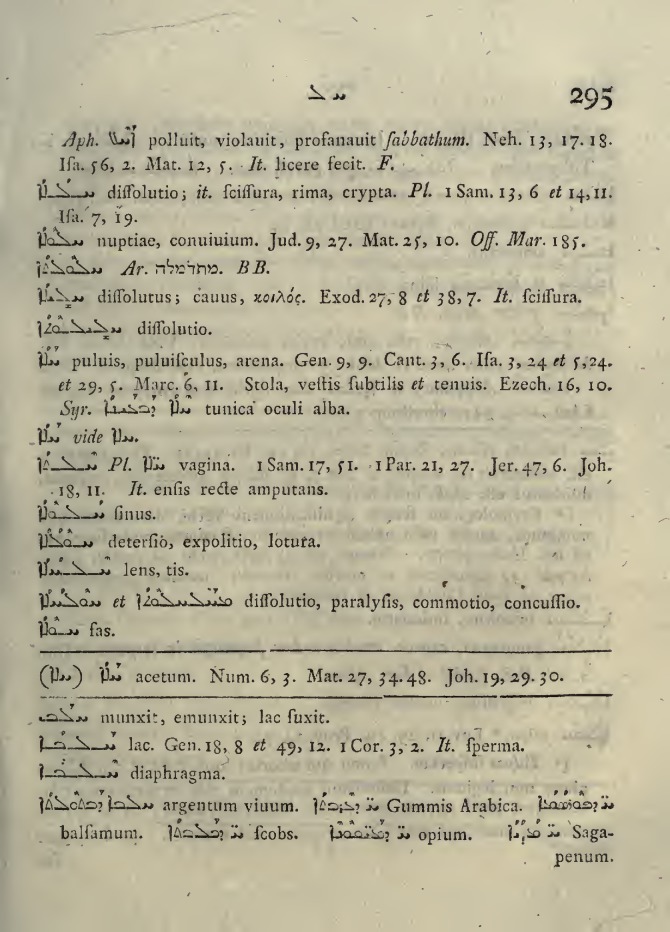 ܚܠ 295
Aph. ܐܚܠ polluit, violauit, profanauit ſabbathum. Neh. 13, 17. 18.
Iſa. 56, 2. Mat. 12, 5. It. licere fecit. F.
diſſolutio; it. ſciſſura, rima, crypta. Pl. 1 Sam. 13, 6 et 14, 11.
Iſa. 7, 19.
ܚܠܘܠܐ nuptiae, conuiuium. Jud. 9, 27. Mat. 25, 10. Off. Mar. 185.
ܚܠܘܠܬܐ Ar. BB.
ܚܠܝܠܐ diſſolutus; cauus, κοιλός. Exod. 27, 8 et 38, 7. It. ſciſſura.
ܚܠܝܠܘܬܐ diſſolutio.
ܚܠܐ puluis, puluiſculus, arena. Gen. 9, 9. Cant. 3, 6. Iſa. 3, 24 et 5, 24.
et 29, 5. Marc. 6, 11. Stola, veſtis ſubtilis et tenuis. Ezech. 16, 10.
Syr. ܚܠܐ tunica oculi alba.
ܚܠܐ vide ܚܠܐ.
Pl. vagina. 1 Sam. 17, 51. 1 Par. 21, 27. Jer. 47, 6. Joh.
18, 11. It. enſis recte amputans.
ſinus.
deterſio, expolitio, lotura.
lens, tis.
et diſſolutio, paralyſis, commotio, concuſſio.
fas.
(ܚܠܐ) ܚܠܐ acetum. Num. 6, 3. Mat. 27, 34. 48. Joh. 19, 29. 30.
ܚܠܒ munxit, emunxit; lac ſuxit.
ܚܠܒܐ lac. Gen. 18, 8 et 49, 12. 1 Cor. 3, 2. It. ſperma.
ܚܠܒܐ diaphragma.
ܚܠܒܐ argentum viuum. Gummis Arabica.
balſamum. ſcobs. opium. Saga-
penum.